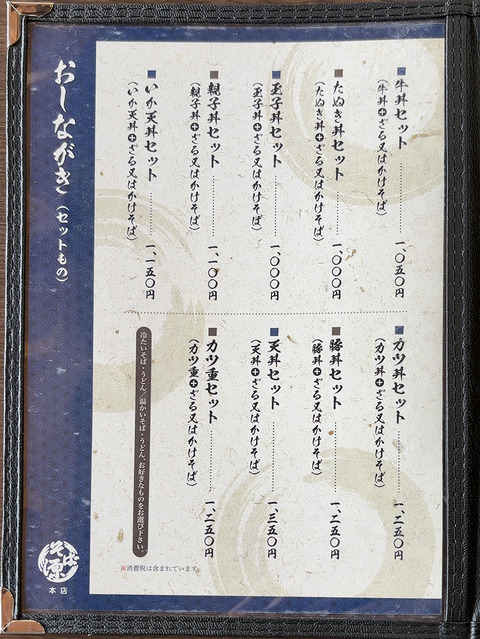 おしながき(セットもの)
牛丼セット
(牛丼+ざる又はかけそば)
一、〇五〇円
たぬき丼セット
(たぬき丼+ざる又はかけそば)
一、〇〇〇円
玉子丼セット
(玉子丼+ざる又はかけそば)
一、〇〇〇円
親子丼セット
(親子丼+ざる又はかけそば)
一、一〇〇円
いか天丼セット
(いか天丼+ざる又はかけそば)
一、一五〇円
カツ丼セット
(カツ丼+ざる又はかけそば)
一、二五〇円
豚丼セット
(豚丼+ざる又はかけそば)
一、二五〇円
天丼セット
(天丼+ざる又はかけそば)
一、三五〇円
カツ重セット
(カツ重+ざる又はかけそば)
一、二五〇円
冷たいそば・うどん/温かいそば・うどん、お好きなものをお選び下さい。
※消費税は含まれています。
本店